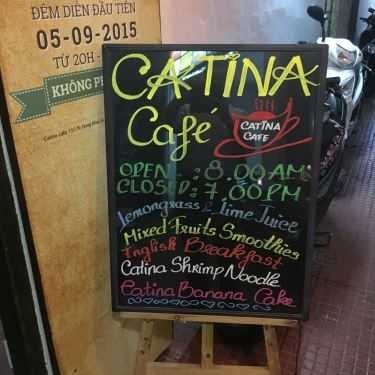 ĐÊM DIỄN ĐẦU TIÊN
05-09-2015
TỪ 20H
KHÔNG
CATINA
Café
CATINA
CAFE
OPEN : 8.00 AM
CLOSED : 7.00 PM
Lemongrass & Lime Juice
Mixed Fruits Smoothies
English Breakfast
Catina Shrimp Noodle
Catina Banana Cake